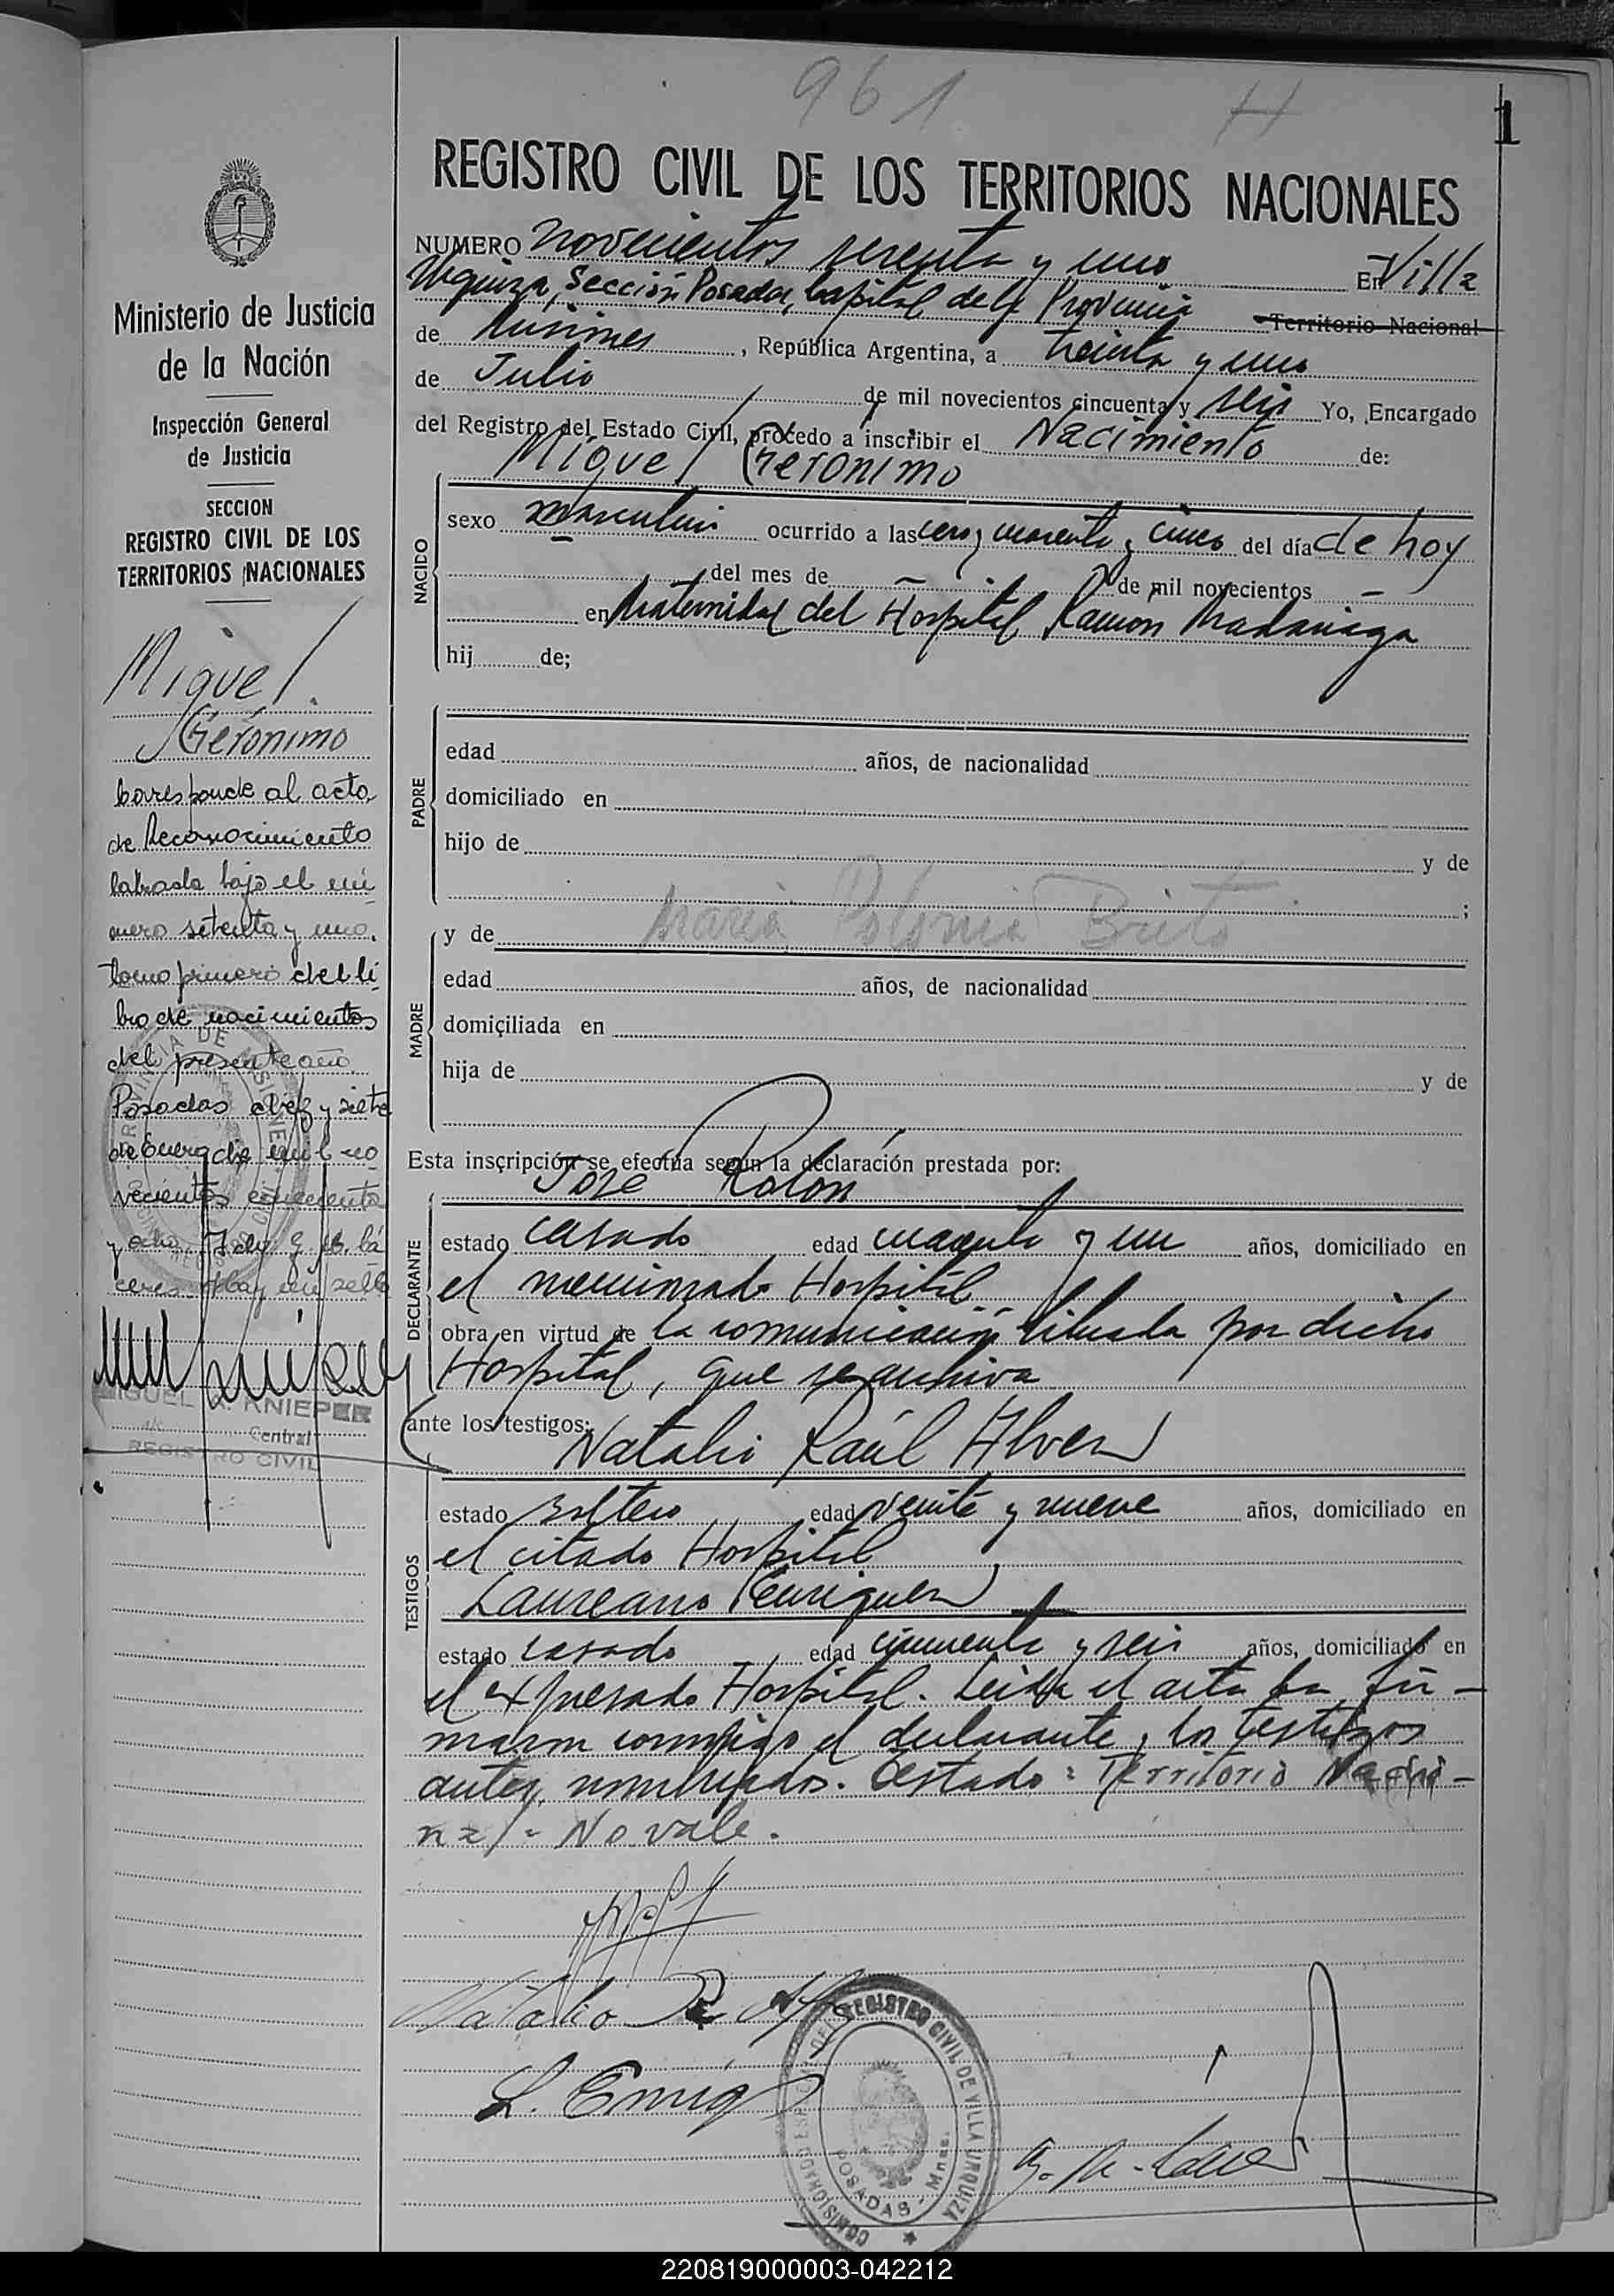 961 H
1
REGISTRO CIVIL DE LOS TERRITORIOS NACIONALES
NUMERO novecientos sesenta y uno En Villa
Urquiza, Sección Posadas, Capital de la Provincia Territorio Nacional
de Misiones, República Argentina, a treinta y uno
de Julio de mil novecientos cincuenta y seis Yo, Encargado
del Registro del Estado Civil, procedo a inscribir el Nacimiento de:
Miguel Gerónimo
NACIDO
sexo masculino ocurrido a las cero y cuarenta y cinco del día de hoy
del mes de — de mil novecientos —
en Maternidad del Hospital Ramon Madariaga
hij de;
PADRE
edad años, de nacionalidad
domiciliado en
hijo de y de
;
MADRE
y de Maria Polonia Brito
edad años, de nacionalidad
domiciliada en
hija de y de
Esta inscripción se efectúa según la declaración prestada por:
José Rolón
DECLARANTE
estado casado edad cuarenta y un años, domiciliado en
el mencionado Hospital
obra en virtud de la comunicación librada por dicho
Hospital, que se archiva
ante los testigos: Natalio Raúl Alvez
TESTIGOS
estado soltero edad veinte y nueve años, domiciliado en
el citado Hospital
Laureano Enriquez
estado casado edad cincuenta y seis años, domiciliado en
el expresado Hospital. Leida el acta la fir-
maron conmigo el declarante y los testigos
antes nombrados. Testado: Territorio Nacio-
nal= No vale.
Natalio R.
L. Enriq
COMISIONADO DEL REGISTRO CIVIL DE VILLA URQUIZA
POSADAS - Mnes.
Ministerio de Justicia
de la Nación
Inspección General
de Justicia
SECCION
REGISTRO CIVIL DE LOS
TERRITORIOS NACIONALES
Miguel
Gerónimo
Corresponde al acta
de Reconocimiento
labrada bajo el nú
mero setenta y uno.
tomo primero del li
bro de nacimientos
del presente año.
Posadas diez y siete
de Enero de mil no
vecientos cincuenta
y ocho.
Hay un sello
MIGUEL A. KNIEPER
Central
REGISTRO CIVIL
220819000003-042212